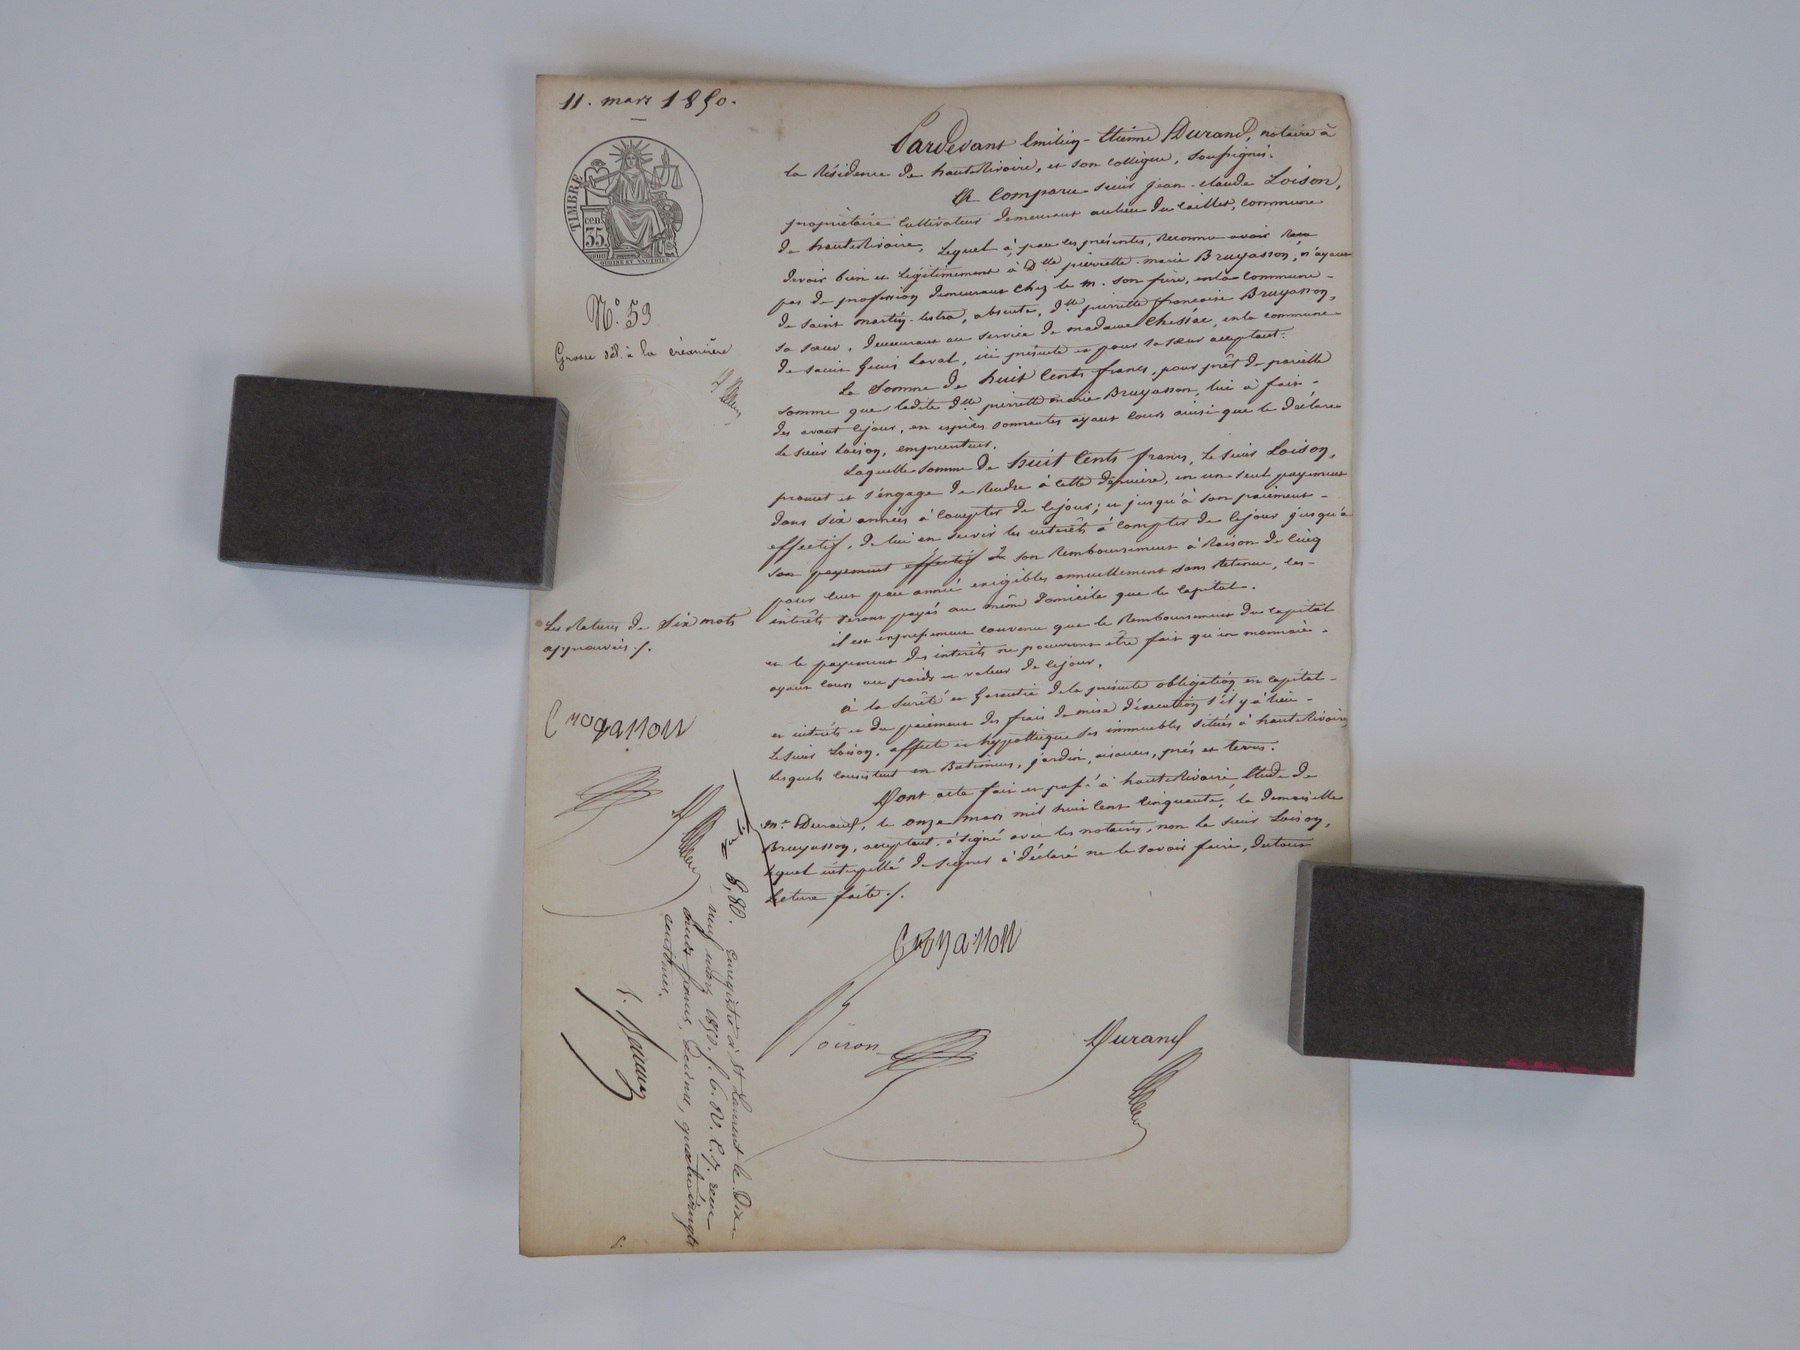 11. mars 1850.
TIMBRE
cent
35
N.° 59
Grosse dél. à la créancière
Pardevant Emilien-Etienne Durand, notaire à
la Résidence de hauteRivoire, et son collègue, soussignés.
A Comparu sieur jean-claude Loison,
propriètaire cultivateur demeurant au lieu du caillet, commune
de hauteRivoire, Lequel à, par les présentes, Reconnu avoir Reçu
devoir bien et Légitimement à Dlle pierrette-marie Bruyasson, n'ayant
pas de profession demeurant Chez le m. son frère, en la commune
de saint martin-lestra, absente, Dlle pierrette françoise Bruyasson,
sa sœur, demeurant au service de madame Chessac, en la commune
de saint Genis Laval, ici présente et pour sa sœur acceptant.
La Somme de huit Cents francs, pour prêt de pareille
somme que ladite Dlle pierrette marie Bruyasson, lui a fait
dès avant cejour, en espèces sonnantes ayant cours ainsi que le déclare
Le sieur Loison, emprunteur.
Laquelle somme de huit Cents francs, Le sieur Loison,
promet et s'engage de Rendre à cette dernière, en un seul payement
dans six années à compter de cejour; et jusqu'à son paiement
effectif, de lui en servir les intérêts à compter de cejour jusqu'à
son payement effectif de son Remboursement à Raison de cinq
pour cent par année exigibles annuellement sans Retenue, les
intérêts seront payés au même domicile que le capital.
il est expressement convenu que le Remboursement du capital
et le payement des intérêts ne pourront être fait qu'en monnaie
ayant cours au poids et valeur de cejour.
à la sûrêté et Garantie de la présente obligation en capital
et intérêts et du paiement des frais de mise d'execution s'il y à lieu
Le sieur Loison, affecte et hypothèque ses immeubles situés à hauteRivoire
Lesquels consistent en Batimens, jardin, aisances, prés et terres.
Dont acte fait et passé à hauteRivoire, Etude de
me Durand, le onze mars mil huit cent cinquante, la demoiselle
Bruyasson, acceptant, à signé avec les notaires, non le sieur Loison,
Lequel interpellé de signer à déclaré ne le savoir faire, du tout
lecture faite ./.
Les Ratures de Six mots
approuvées ./.
8,80. Enregistré à St Laurent le Dix
neuf mars 1850. f. 6. V. C. 7. reçu
francs, Decime, quatrevingts
centimes.
Noiron
Durand